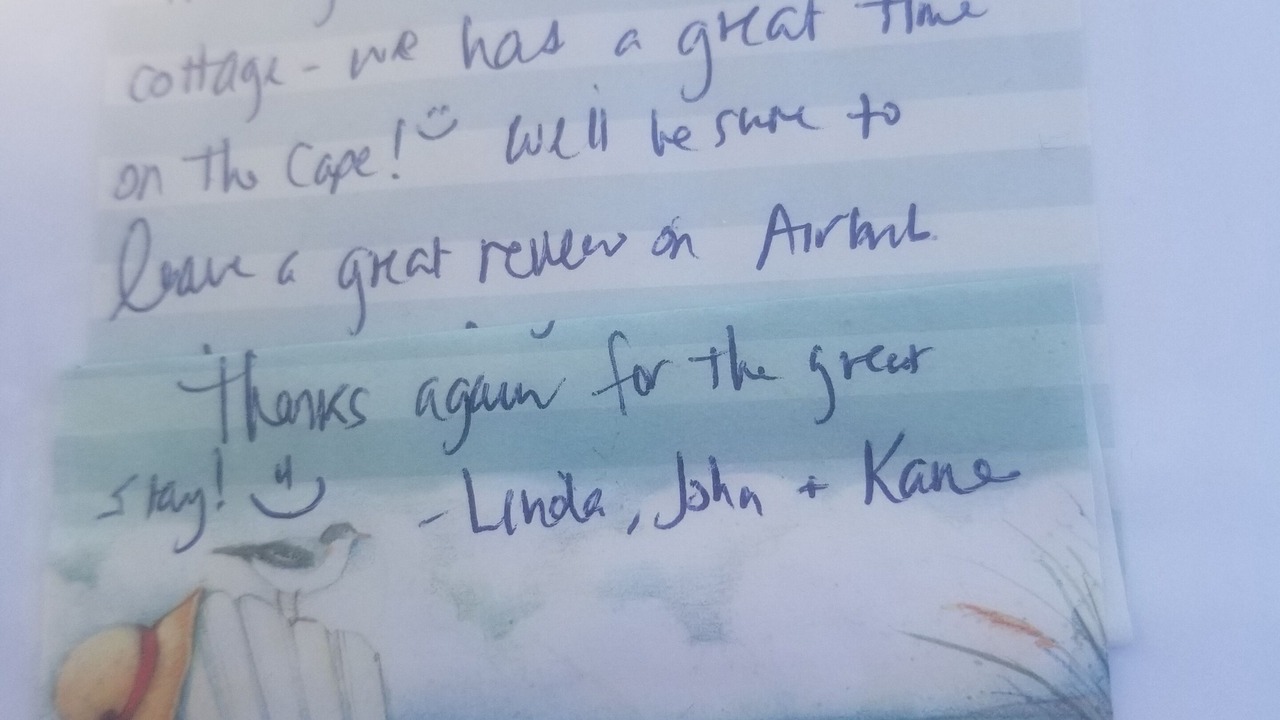 cottage - we has a great time
on the Cape! we'll be sure to
leave a great review on Airbnb.
Thanks again for the great
stay!
- Linda, John + Kane